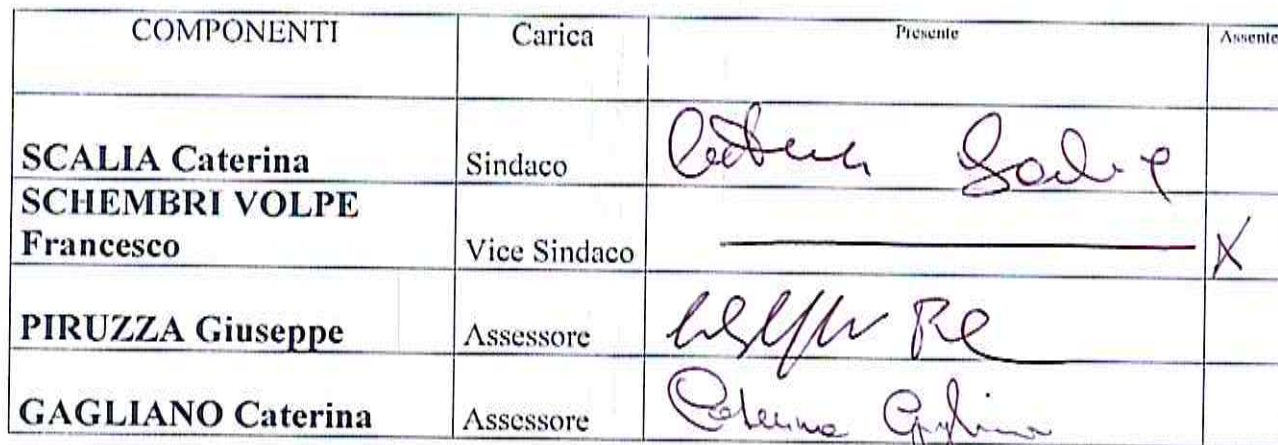 COMPONENTI Carica Presente Assente
SCALIA Caterina Sindaco
SCHEMBRI VOLPE
Francesco Vice Sindaco X
PIRUZZA Giuseppe Assessore
GAGLIANO Caterina Assessore Caterina Gagliano